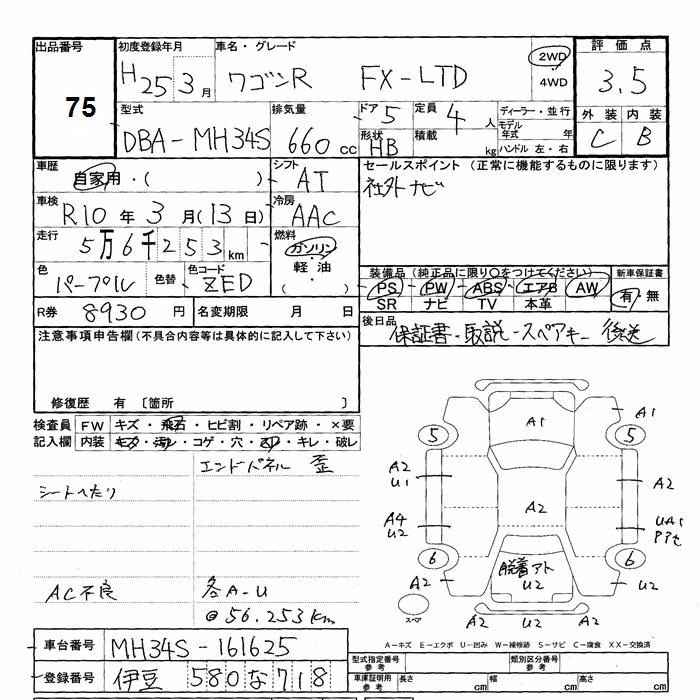 出品番号 初度登録年月 車名・グレード 評価点
75 H25 3月 ワゴンR FX-LTD 2WD・4WD 3.5
型式 排気量 ドア 5 定員 4人 ディーラー・並行 外装 内装
DBA-MH34S 660cc 形状 HB 積載 kg モデル年式 年 ハンドル 左・右 C B
車歴 シフト セールスポイント (正常に機能するものに限ります)
自家用・( ) AT 社外ナビ
車検 冷房
R10年3月(13日) AAC
走行 燃料
5万6千253km ガソリン・軽油・( )
色 色替 色コード 装備品 (純正品に限り○をつけてください) 新車保証書
パープル ZED PS PW ABS エアB AW 有・無
SR ナビ TV 本革
R券 8930円 名変期限 月 日 後日品 保証書・取説・スペアキー 後送
注意事項申告欄(不具合内容等は具体的に記入して下さい)
修復歴 有 〔箇所 〕
検査員 FW キズ・飛石・ヒビ割・リペア跡・×要
記入欄 内装 キズ・汚レ・コゲ・穴・スレ・キレ・破レ
エンドパネル 歪
シートへたり
AC不良 各A-U
@56.253km
A1 A1
5 5
A2 U1 A2 A2
A4 U2 UA1
6 6
脱着アト U2
A2 U2
スペア A2 U2 U2
A-キズ E-エクボ U-凹み W-補修跡 S-サビ C-腐食 XX-交換済
車台番号 MH34S-161625
型式指定番号 参考 類別区分番号 参考
登録番号 伊豆 580 な 718
車庫証明用 参考 長さ cm 幅 cm 高さ cm